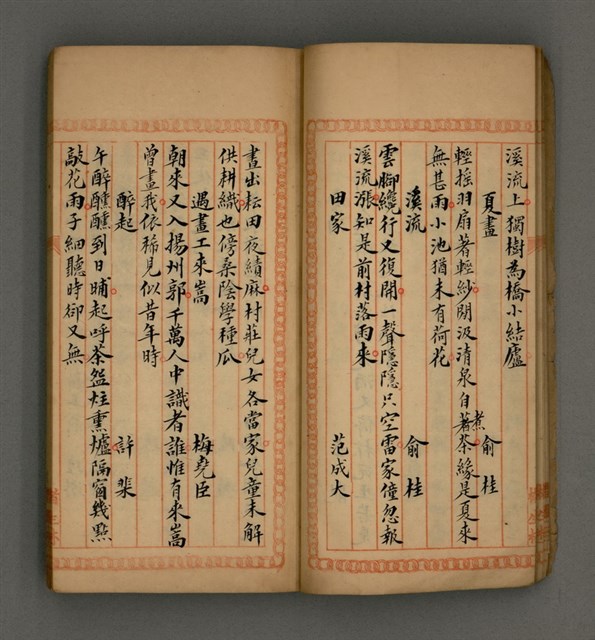 溪流上獨樹為橋小結廬
夏晝 俞桂
輕搖羽扇著輕紗閒汲清泉自著煮茶緣是夏來
無甚雨小池猶未有荷花
溪流 俞桂
雲腳纔行又復開一聲隱隱只空雷家僮忽報
溪流漲知是前村落雨來
田家 范成大
晝出耘田夜績麻村莊兒女各當家兒童未解
供耕織也傍桑陰學種瓜
遇畫工來嵩 梅堯臣
朝來又入揚州郭千萬人中識者誰惟有來嵩
曾畫我依稀見似昔年時
醉起 許棐
午醉醺醺到日晡起呼茶盌炷熏爐隔窗幾點
敲花雨子細聽時卻又無